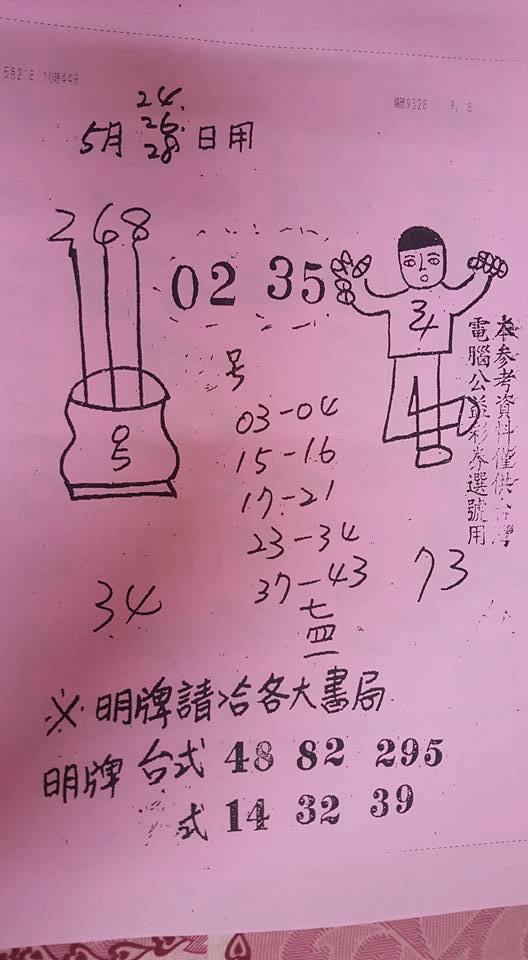 5月2 日 10時44分
編號9328 8. 8
24.
26.
5月 28 日用
2 6 8
02 35
34
号
05
03-04
15-16
17-21
23-34
37-43
七
四
一
34
73
本参考資料僅供台灣
電腦公益彩券選號用
※明牌請洽各大書局
明牌 台式 48 82 295
式 14 32 39